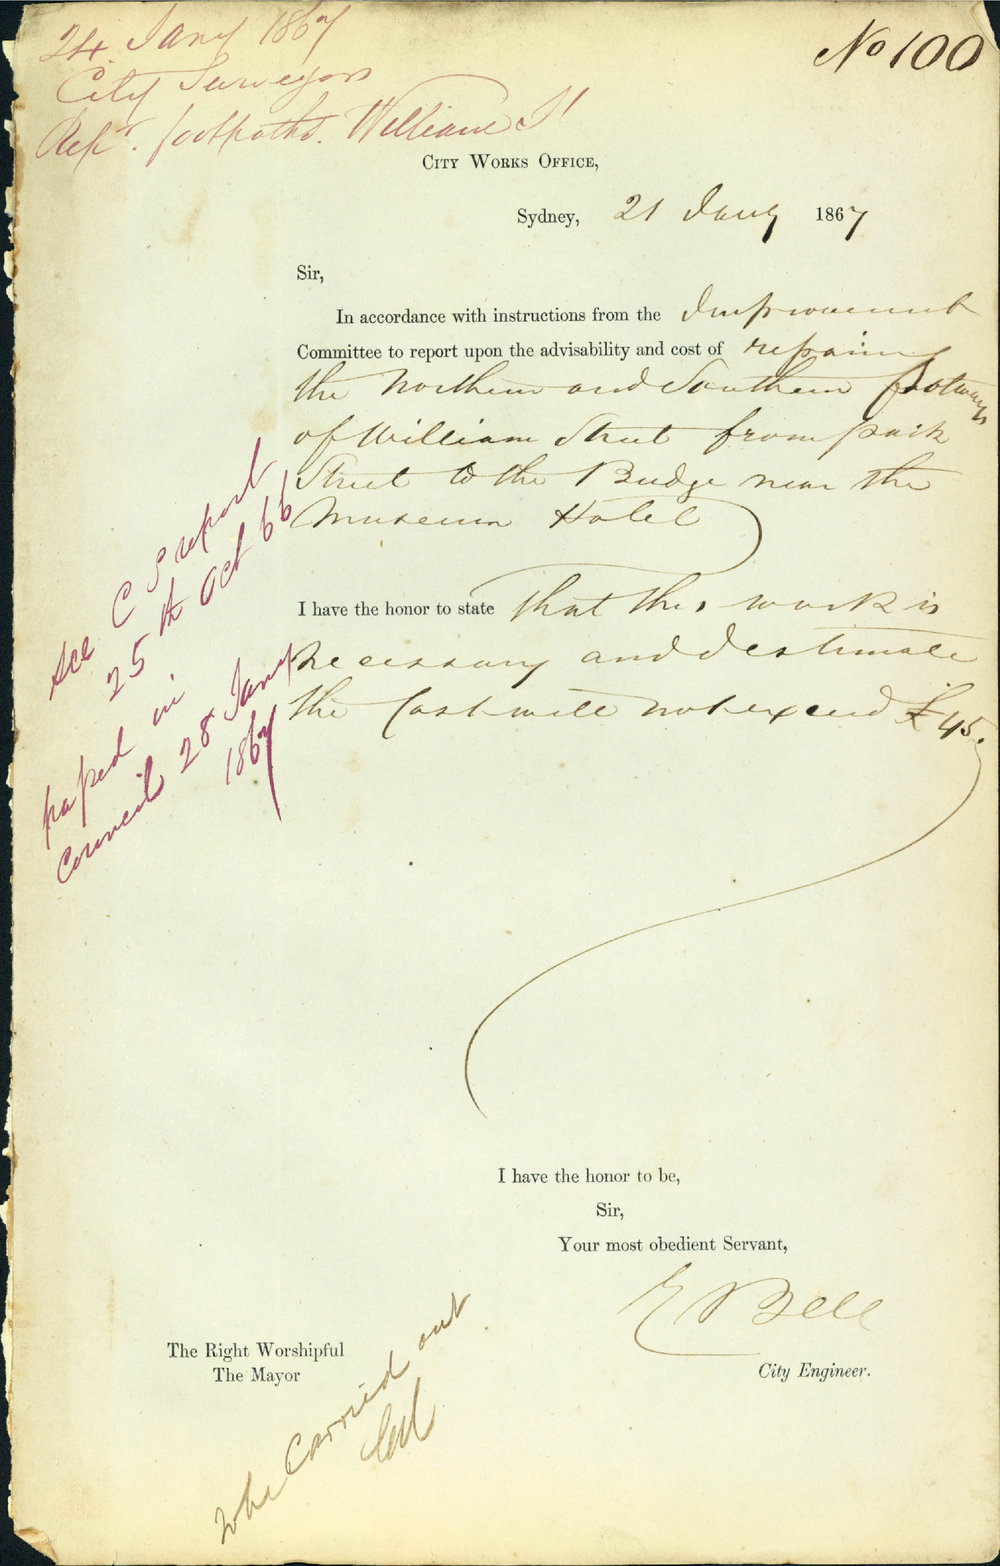 24 Jany 1867
City Surveyor
Rept. footpaths. William St
No 100
CITY WORKS OFFICE,
Sydney, 21 Jany 1867
Sir,
In accordance with instructions from the Improvement
Committee to report upon the advisability and cost of repairing
the Northern and Southern footways
of William Street from park
Street to the Bridge near the
Museum Hotel
I have the honor to state that this work is
necessary and I estimate
the Cost will not exceed £45.
See C S report
25th Oct 66
passed in
Council 28 Jany
1867
I have the honor to be,
Sir,
Your most obedient Servant,
E Bell
City Engineer.
The Right Worshipful
The Mayor
Carried out